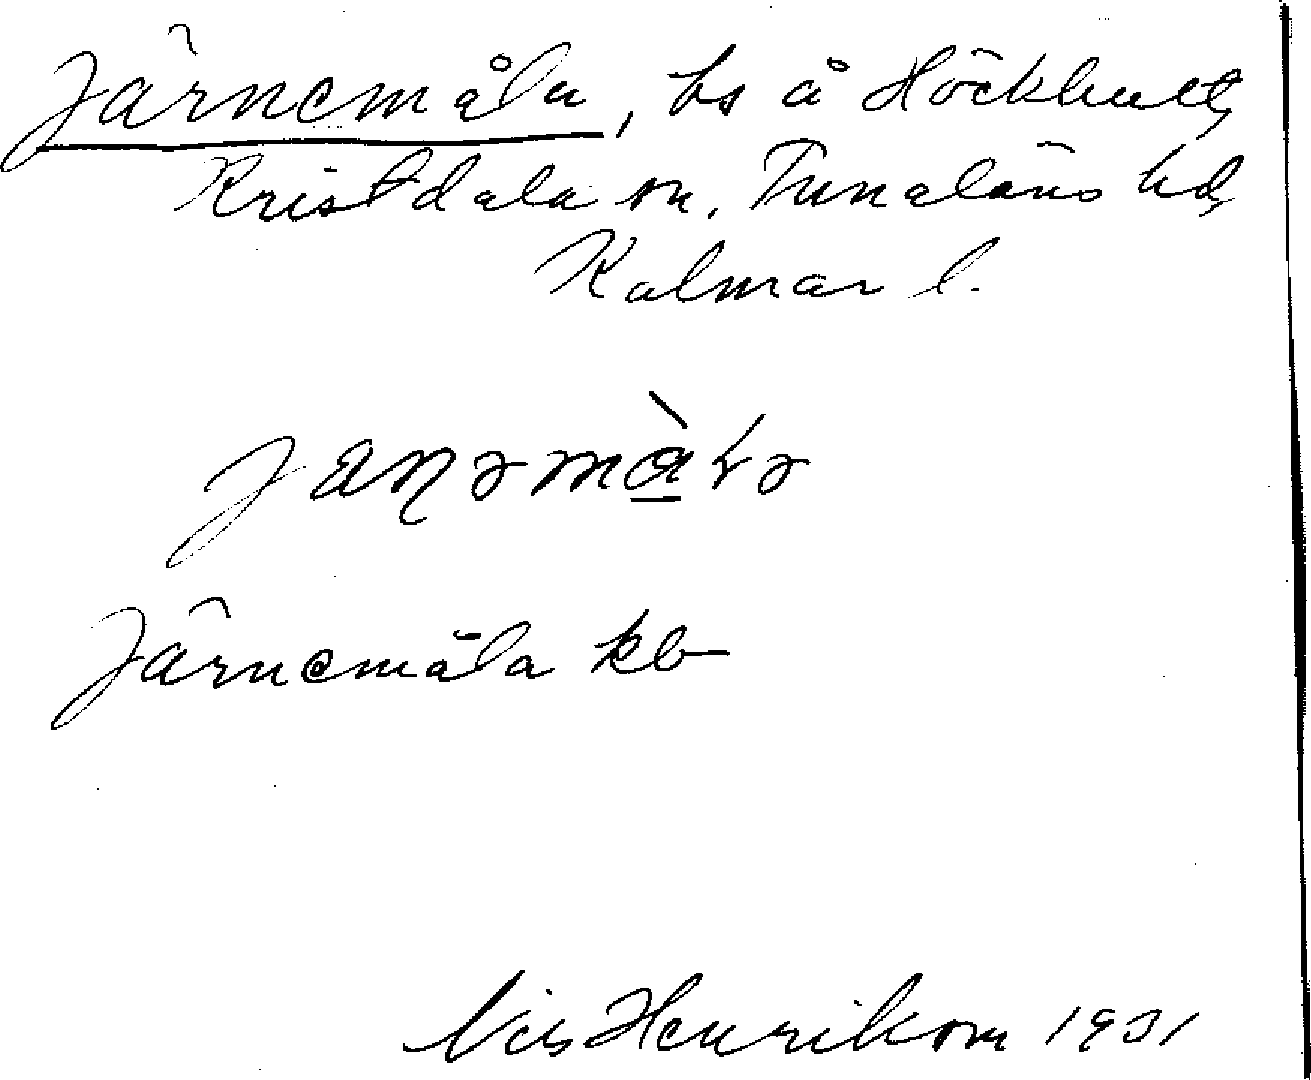 Järnemåla, ls å Höckhult,
Kristdala sn. Tunaläns hd,
Kalmar l.
Järnemåla kb
Nils Henrikson 1931